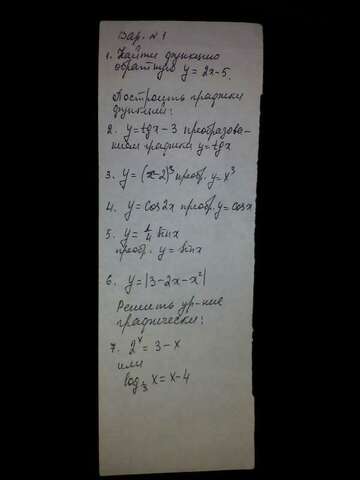 Вар. №1
1. Найти функцию
обратную y = 2x-5.
Построить графики
функции:
2. y = tgx - 3 преобразова-
нием графика y = tgx
3. y = (x-2)³ преобр. y = x³
4. y = cos2x преобр. y = cosx
5. y = 1/4 sinx
преобр. y = sinx
6. y = |3-2x-x²|
Решить ур-ние
графически:
7. 2ˣ = 3-x
или
log₃ x = x-4